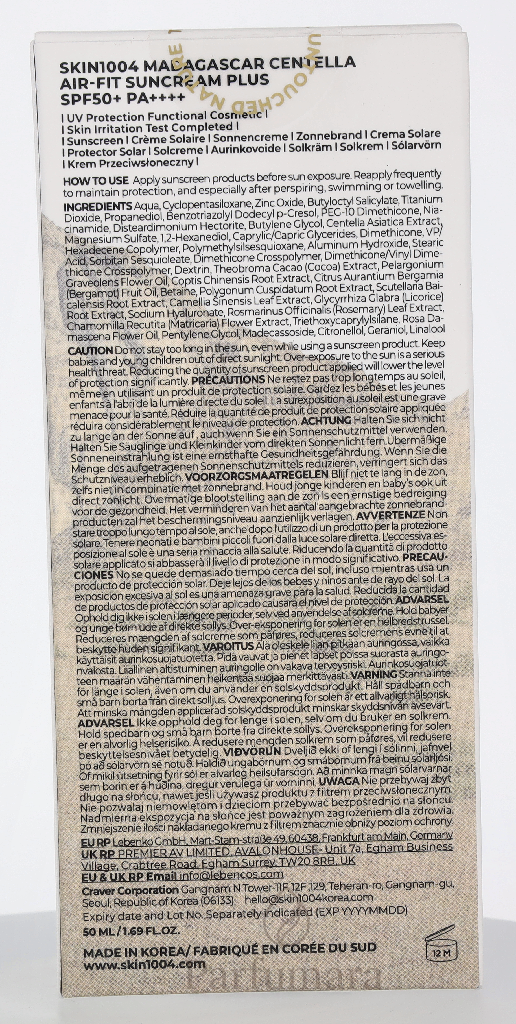 UNTOUCHED NATURE
SKIN1004 MADAGASCAR CENTELLA
AIR-FIT SUNCREAM PLUS
SPF50+ PA++++
| UV Protection Functional Cosmetic |
| Skin Irritation Test Completed |
| Sunscreen | Crème Solaire | Sonnencreme | Zonnebrand | Crema Solare
| Protector Solar | Solcreme | Aurinkovoide | Solkräm | Solkrem | Sólarvörn
| Krem Przeciwsłoneczny |
HOW TO USE Apply sunscreen products before sun exposure. Reapply frequently
to maintain protection, and especially after perspiring, swimming or towelling.
INGREDIENTS Aqua, Cyclopentasiloxane, Zinc Oxide, Butyloctyl Salicylate, Titanium
Dioxide, Propanediol, Benzotriazolyl Dodecyl p-Cresol, PEG-10 Dimethicone, Nia-
cinamide, Disteardimonium Hectorite, Butylene Glycol, Centella Asiatica Extract,
Magnesium Sulfate, 1,2-Hexanediol, Caprylic/Capric Glycerides, Dimethicone, VP/
Hexadecene Copolymer, Polymethylsilsesquioxane, Aluminum Hydroxide, Stearic
Acid, Sorbitan Sesquioleate, Dimethicone Crosspolymer, Dimethicone/Vinyl Dime-
thicone Crosspolymer, Dextrin, Theobroma Cacao (Cocoa) Extract, Pelargonium
Graveolens Flower Oil, Coptis Chinensis Root Extract, Citrus Aurantium Bergamia
(Bergamot) Fruit Oil, Betaine, Polygonum Cuspidatum Root Extract, Scutellaria Bai-
calensis Root Extract, Camellia Sinensis Leaf Extract, Glycyrrhiza Glabra (Licorice)
Root Extract, Sodium Hyaluronate, Rosmarinus Officinalis (Rosemary) Leaf Extract,
Chamomilla Recutita (Matricaria) Flower Extract, Triethoxycaprylylsilane, Rosa Da-
mascena Flower Oil, Pentylene Glycol, Madecassoside, Citronellol, Geraniol, Linalool
CAUTION Do not stay too long in the sun, even while using a sunscreen product. Keep
babies and young children out of direct sunlight. Over-exposure to the sun is a serious
health threat. Reducing the quantity of sunscreen product applied will lower the level
of protection significantly. PRÉCAUTIONS Ne restez pas trop longtemps au soleil,
même en utilisant un produit de protection solaire. Gardez les bébés et les jeunes
enfants à l'abri de la lumière directe du soleil. La surexposition au soleil est une grave
menace pour la santé. Réduire la quantité de produit de protection solaire appliquée
réduira considérablement le niveau de protection. ACHTUNG Halten Sie sich nicht
zu lange an der Sonne auf, auch wenn Sie ein Sonnenschutzmittel verwenden.
Halten Sie Säuglinge und Kleinkinder vom direkten Sonnenlicht fern. Übermäßige
Sonneneinstrahlung ist eine ernsthafte Gesundheitsgefährdung. Wenn Sie die
Menge des aufgetragenen Sonnenschutzmittels reduzieren, verringert sich das
Schutzniveau erheblich. VOORZORGSMAATREGELEN Blijf niet te lang in de zon,
zelfs niet in combinatie met zonnebrand. Houd jonge kinderen en baby's ook uit
direct zonlicht. Overmatige blootstelling aan de zon is een ernstige bedreiging
voor de gezondheid. Het verminderen van het aantal aangebrachte zonnebrand-
producten zal het beschermingsniveau aanzienlijk verlagen. AVVERTENZE Non
stare troppo lungo tempo al sole, anche dopo l'utilizzo di un prodotto per la protezione
solare. Tenere neonati e bambini piccoli fuori dalla luce solare diretta. L'eccessiva es-
posizione al sole è una seria minaccia alla salute. Riducendo la quantità di prodotto
solare applicato si abbasserà il livello di protezione in modo significativo. PRECAU-
CIONES No se quede demasiado tiempo cerca del sol, incluso mientras usa un
producto de protección solar. Deje lejos de los bebes y ninos ante de rayo del sol. La
exposición excesiva al sol es una amenaza grave para la salud. Reducida la cantidad
de productos de protección solar aplicado causara el nivel de protección. ADVARSEL
Ophold dig ikke i solen i længere perioder, selv ved anvendelse af solcreme. Hold babyer
og unge børn ude af direkte sollys. Over-eksponering for solen er en helbredstrussel.
Reduceres mængden af solcreme som påføres, reduceres solcremens evne til at
beskytte huden signifikant. VAROITUS Älä oleskele liian pitkään auringossa, vaikka
käyttäisit aurinkosuojatuotetta. Pidä vauvat ja pienet lapset poissa suorasta auringo-
nvalosta. Liiallinen altistuminen auringolle on vakava terveysriski. Aurinkosuojatuot-
teen määrän vähentäminen heikentää suojaa merkittävästi. VARNING Stanna inte
för länge i solen, även om du använder en solskyddsprodukt. Håll spädbarn och
små barn borta från direkt solljus. Överexponering för solen är ett allvarligt hälsorisk.
Att minska mängden applicerad solskyddsprodukt minskar skyddsnivån avsevärt.
ADVARSEL Ikke opphold deg for lenge i solen, selv om du bruker en solkrem.
Hold spedbarn og små barn borte fra direkte sollys. Overeksponering for solen
er en alvorlig helserisiko. Å redusere mengden solkrem som påføres, vil redusere
beskyttelsesnivået betydelig. VIÐVÖRUN Dveljið ekki of lengi í sólinni, jafnvel
þó að sólarvörn sé notuð. Haldið ungabörnum og smábörnum frá beinu sólarljósi.
Of mikil útsetning fyrir sól er alvarleg heilsufarsógn. Að minnka magn sólarvarnar
sem borin er á húðina, dregur verulega úr vörninni. UWAGA Nie przebywaj zbyt
długo na słońcu, nawet jeśli używasz produktu z filtrem przeciwsłonecznym.
Nie pozwalaj niemowlętom i dzieciom przebywać bezpośrednio na słońcu.
Nadmierna ekspozycja na słońce jest poważnym zagrożeniem dla zdrowia.
Zmniejszenie ilości nakładanego kremu z filtrem znacznie obniży poziom ochrony.
EU RP Lebenko GmbH, Mart-Stam-straße 49, 60438, Frankfurt am Main, Germany
UK RP PREMIER AV LIMITED, AVALONHOUSE- Unit 7a, Egham Business
Village, Crabtree Road, Egham Surrey, TW20 8RB, UK
EU & UK RP Email info@lebencos.com
Craver Corporation Gangnam N Tower-11F, 12F, 129, Teheran-ro, Gangnam-gu,
Seoul, Republic of Korea (06133) hello@skin1004korea.com
Expiry date and Lot No. Separately indicated (EXP YYYYMMDD)
50 ML / 1.69 FL.OZ.
MADE IN KOREA/ FABRIQUÉ EN CORÉE DU SUD
www.skin1004.com
12 M
Parfumara